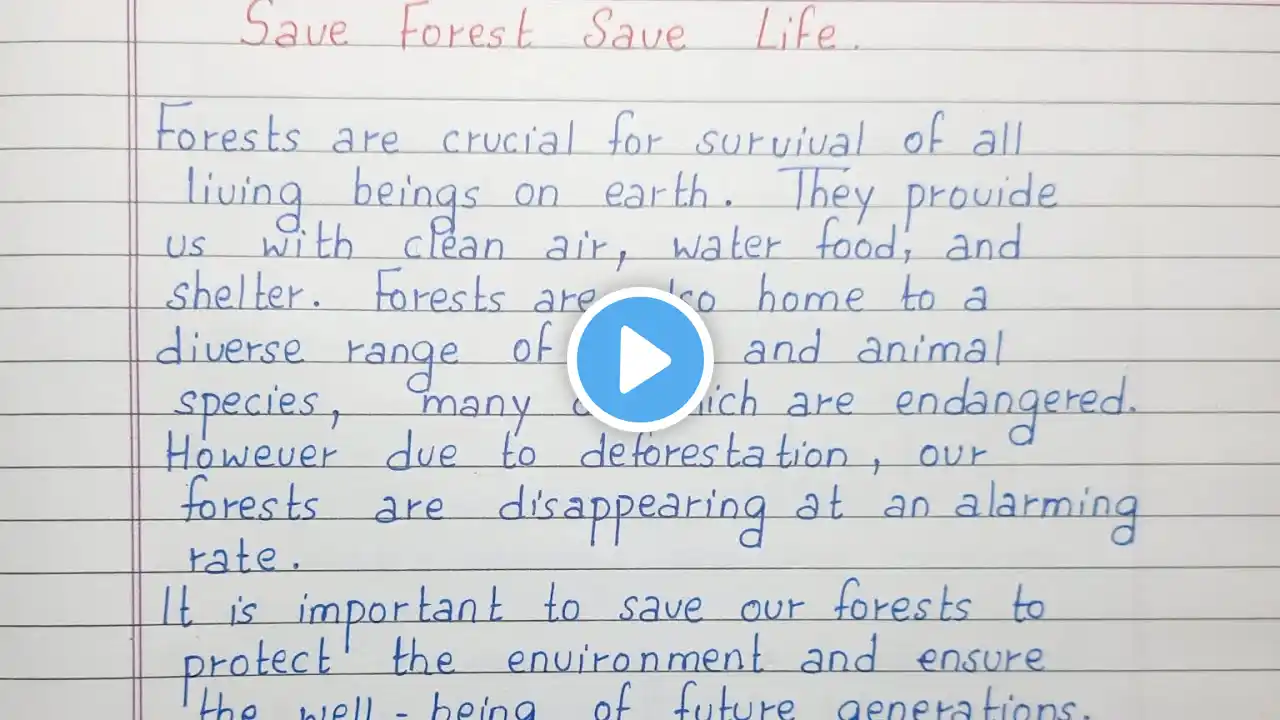 Save Forest Save Life.
Forests are crucial for survival of all
living beings on earth. They provide
us with clean air, water food, and
shelter. Forests are also home to a
diverse range of and animal
species, many which are endangered.
However due to deforestation, our
forests are disappearing at an alarming
rate.
It is important to save our forests to
protect the environment and ensure
the well-being of future generations.